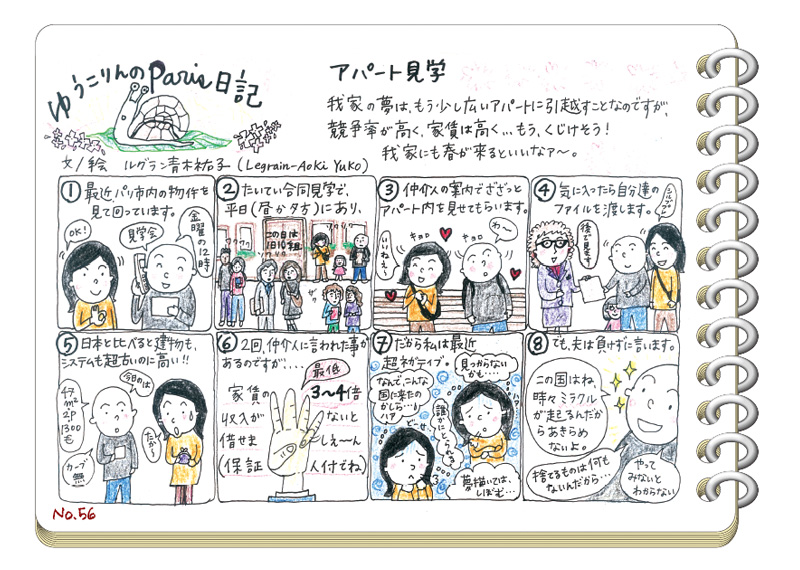 ゆうこりんのParis日記
アパート見学
我家の夢は、もう少し広いアパートに引越すことなのですが、
競争率が高く、家賃は高く…もう、くじけそう!
我家にも春が来るといいなァ〜。
文/絵 ルグラン青木祐子(Legrain-Aoki Yuko)
① 最近、パリ市内の物件を
見て回っています。
OK!
見学会
金曜の
12時
② たいてい合同見学で、
平日(昼か夕方)にあり、
この日は
1日10組
ワクワク
③ 仲介人の案内でざざっと
アパート内を見せてもらいます。
いいねェ〜
キョロ
キョロ
わ〜
④ 気に入ったら自分達の
ファイルを渡します。
後で見ます
⑤ 日本と比べると建物も、
システムも超古いのに高い!!
47
m²
2P
1300
€
カーブ
無
今日のは
たか〜
⑥ 2回、仲介人に言われた事が
あるのですが、…
最低
家賃の
3〜4倍
収入が
ないと
借せま
しぇ〜ん
(保証
人付でね)
⑦ だから私は最近
超ネガティブ。
なんで、こんな
国に来たの
かしら…
ハァ
見つからない
かも…
誰かにとられる
どーせ
夢描いては、
しぼむ…
⑧ でも、夫は負けずに言います。
この国はね、
時々ミラクル
が起こるんだか
らあきらめ
ないよ。
捨てるものは何も
ないんだから…
やって
みないと
わからない
No.56